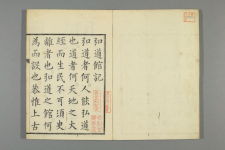 弘道館記
弘道者何人能弘道
也道者何天地之大
經而生民不可須臾
離者也弘道之館何
為而設也恭惟上古